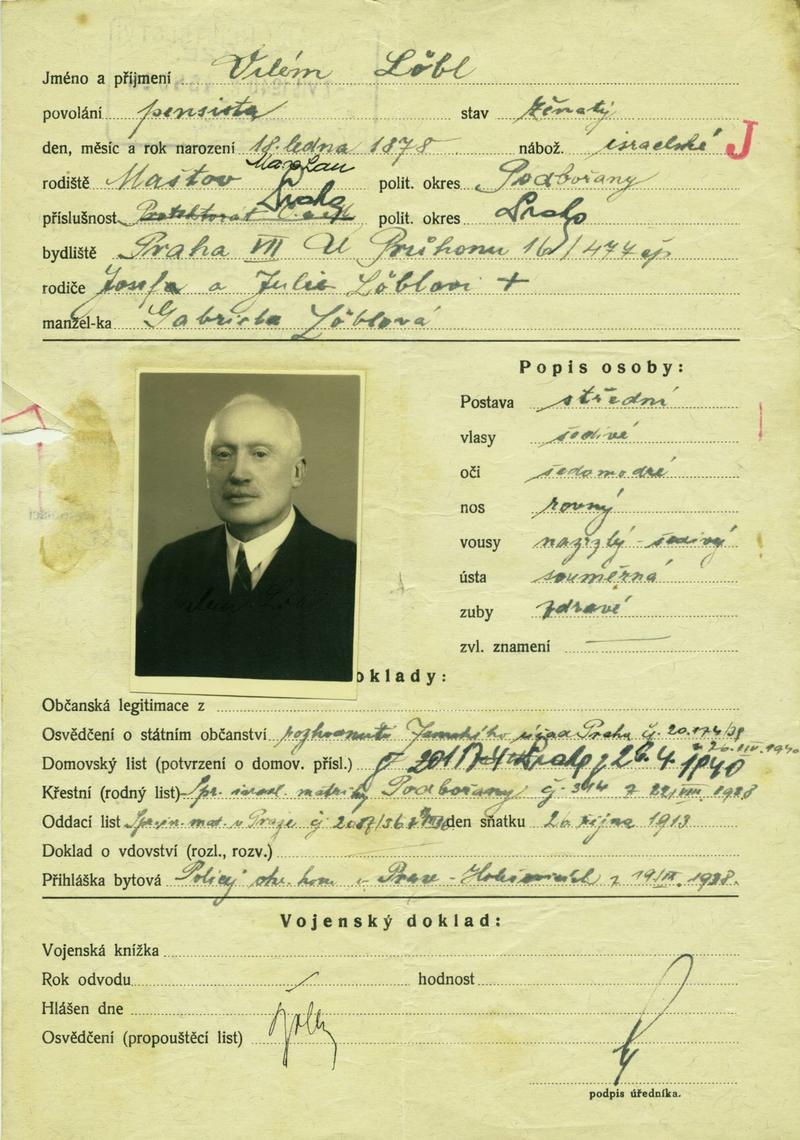 Jméno a příjmení Vilém Löbl
povolání pensista stav ženatý
den, měsíc a rok narození 18. ledna 1878 nábož. israelské J
rodiště Maštov polit. okres Podbořany
příslušnost Praha polit. okres Praha
bydliště Praha VII U Průhonu 16/477 čp
rodiče Josefa a Julie Löblovi +
manžel-ka Gabriela Löblová
Popis osoby:
Postava střední
vlasy šedivé
oči šedomodré
nos rovný
vousy šedivý
ústa souměrná
zuby zdravé
zvl. znamení
oklady:
Občanská legitimace z
Osvědčení o státním občanství Zemského úřadu Praha
Domovský list (potvrzení o domov. přísl.) Praha 26.4.1940
Křestní (rodný list) Podbořany 1928
Oddací list v Praze den sňatku 26 října 1913
Doklad o vdovství (rozl., rozv.)
Přihláška bytová Policej v Praze
Vojenský doklad:
Vojenská knížka
Rok odvodu hodnost
Hlášen dne
Osvědčení (propouštěcí list)
podpis úředníka.